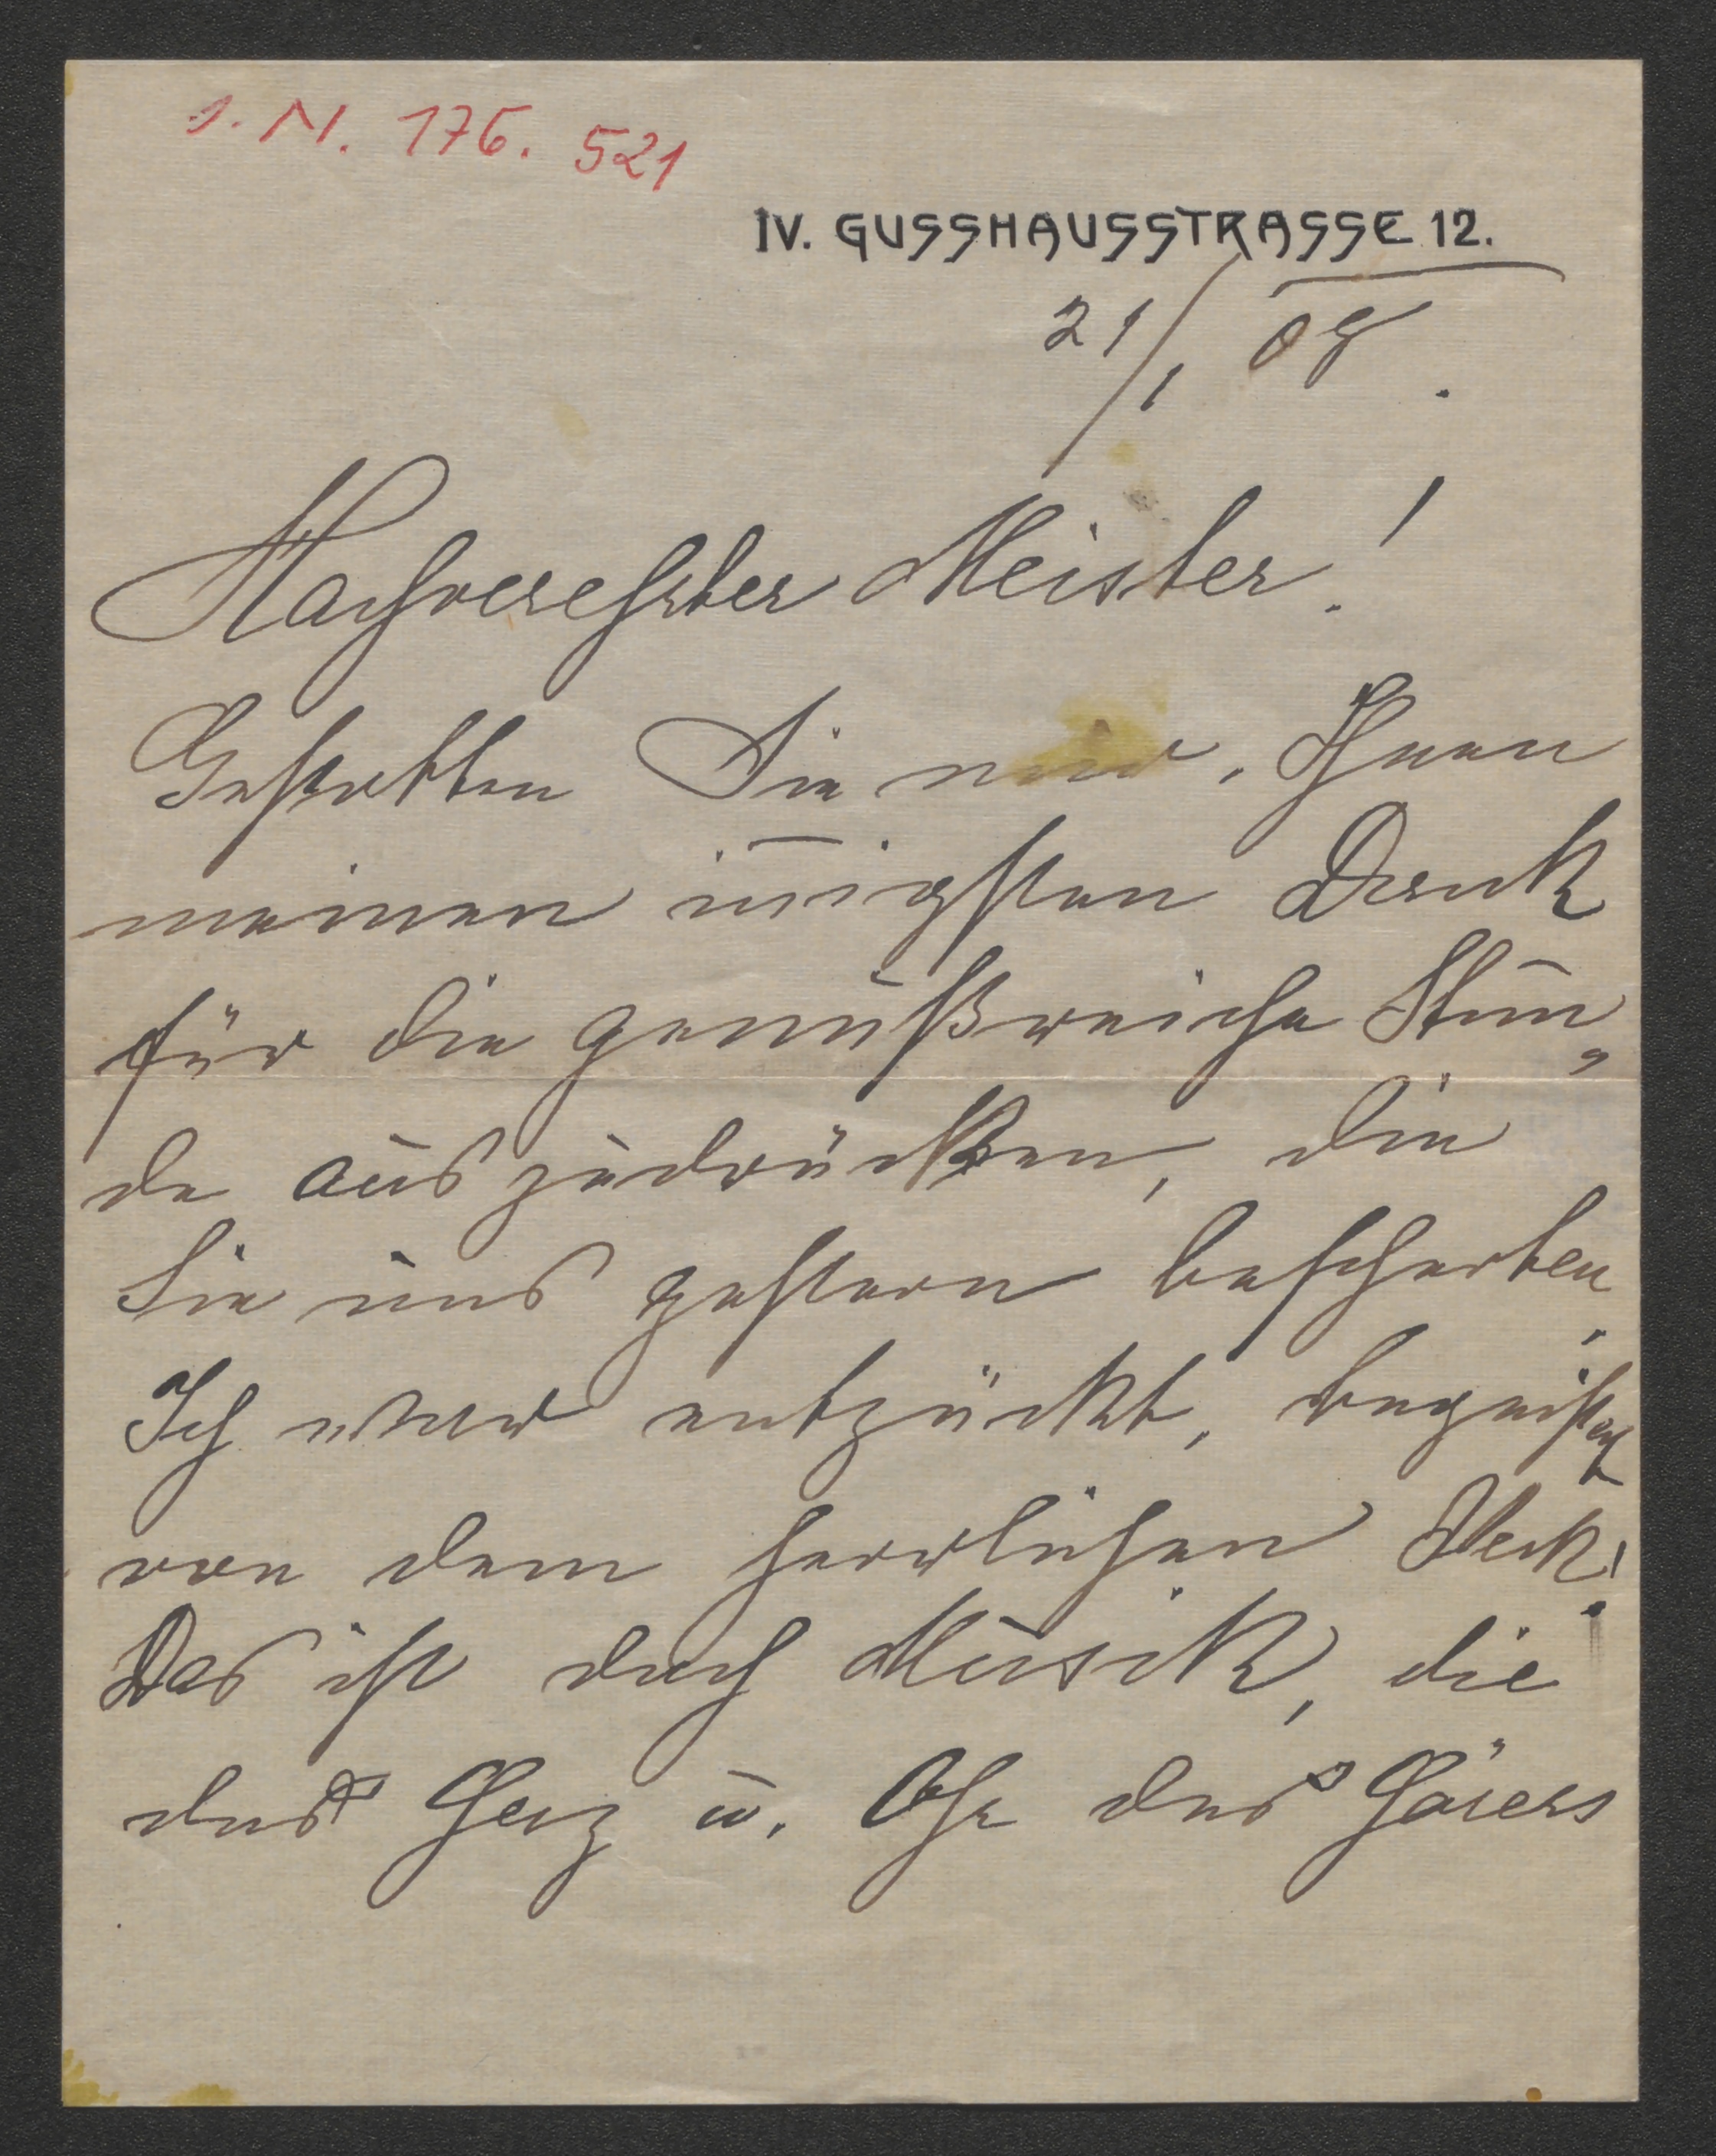 I. N. 176. 521
IV. GUSSHAUSSTRASSE 12.
21/1 08.
Hochverehrter Meister!
Gestatten Sie mir, Ihnen
meinen in̄igsten Dank
für die genußreiche Stun-
de auszudrücken, die
Sie uns gestern bescherten.
Ich war entzückt, begeistert
von dem herrlichen Werk!
Das ist doch Musik, die
das Herz u. Ohr des Hörers